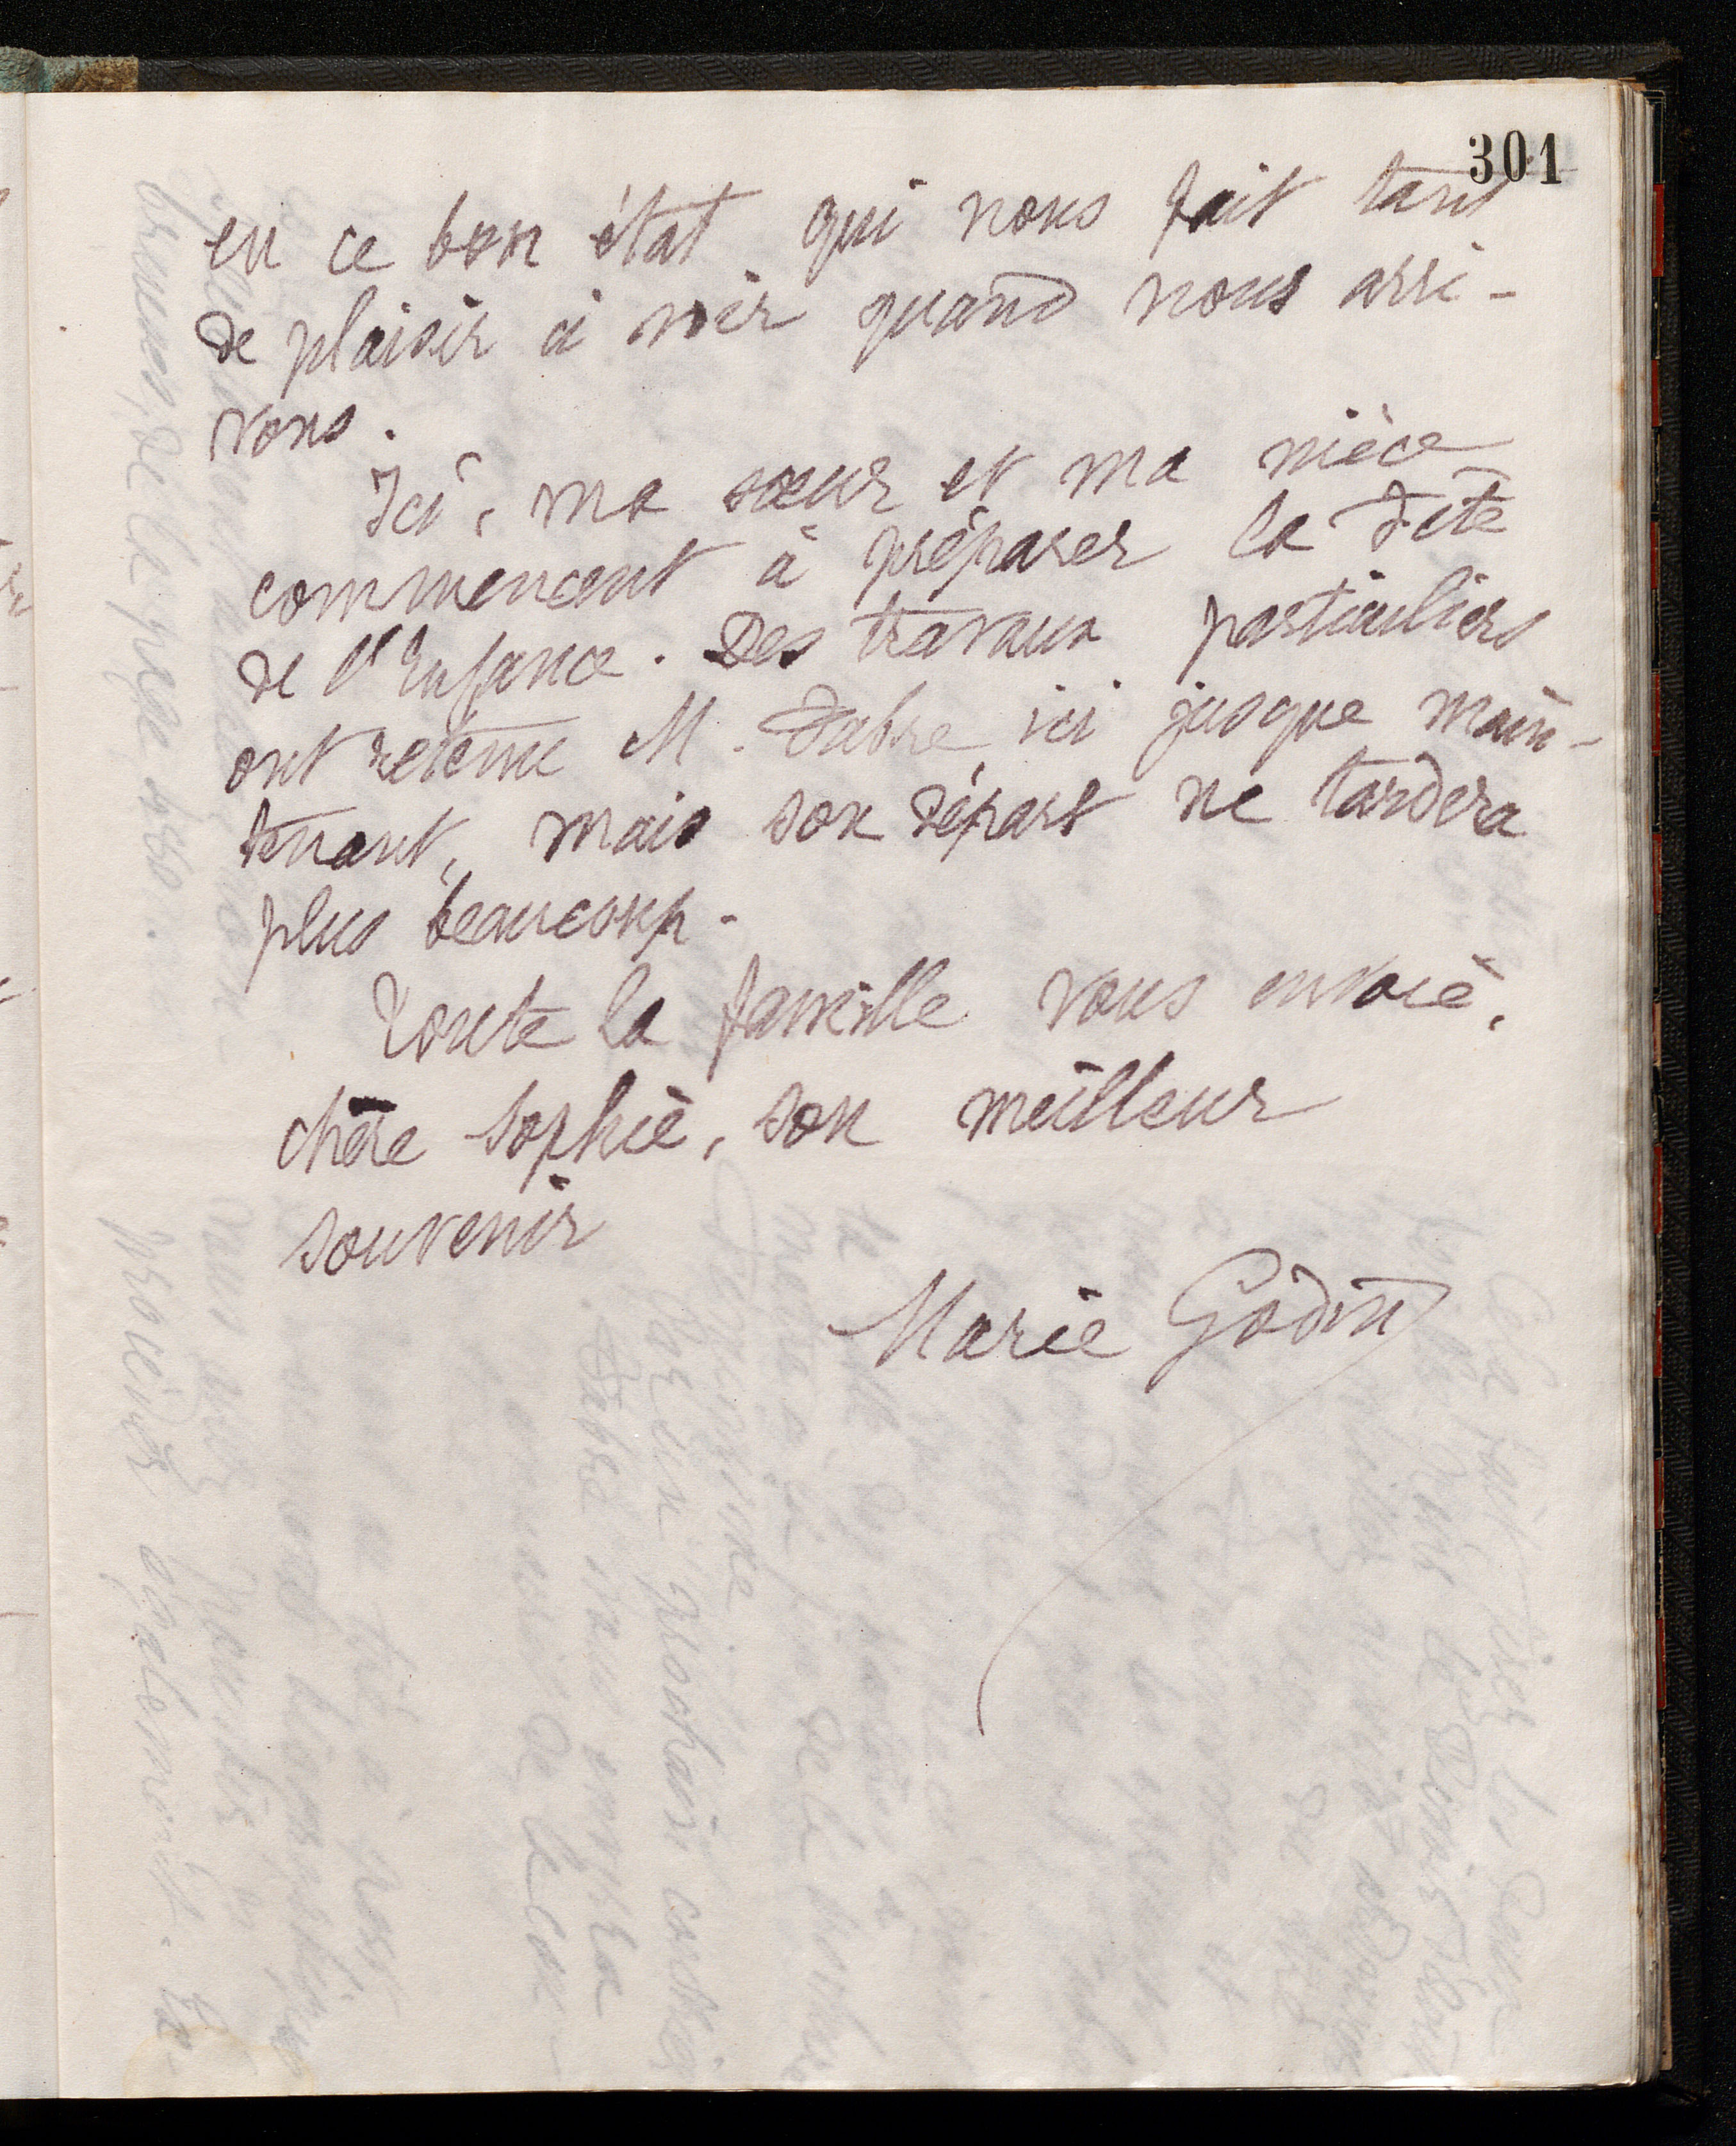 301
en ce bon état qui nous fait tant
de plaisir à voir quand nous arri-
vons.
Ici, ma sœur et ma nièce
commencent à préparer la fête
de l'Enfance. Des travaux particuliers
ont retenu M. Fabre ici jusque main-
tenant, mais son départ ne tardera
plus beaucoup.
Toute la famille vous envoie,
chère Sophie, son meilleur
souvenir
Marie Godin